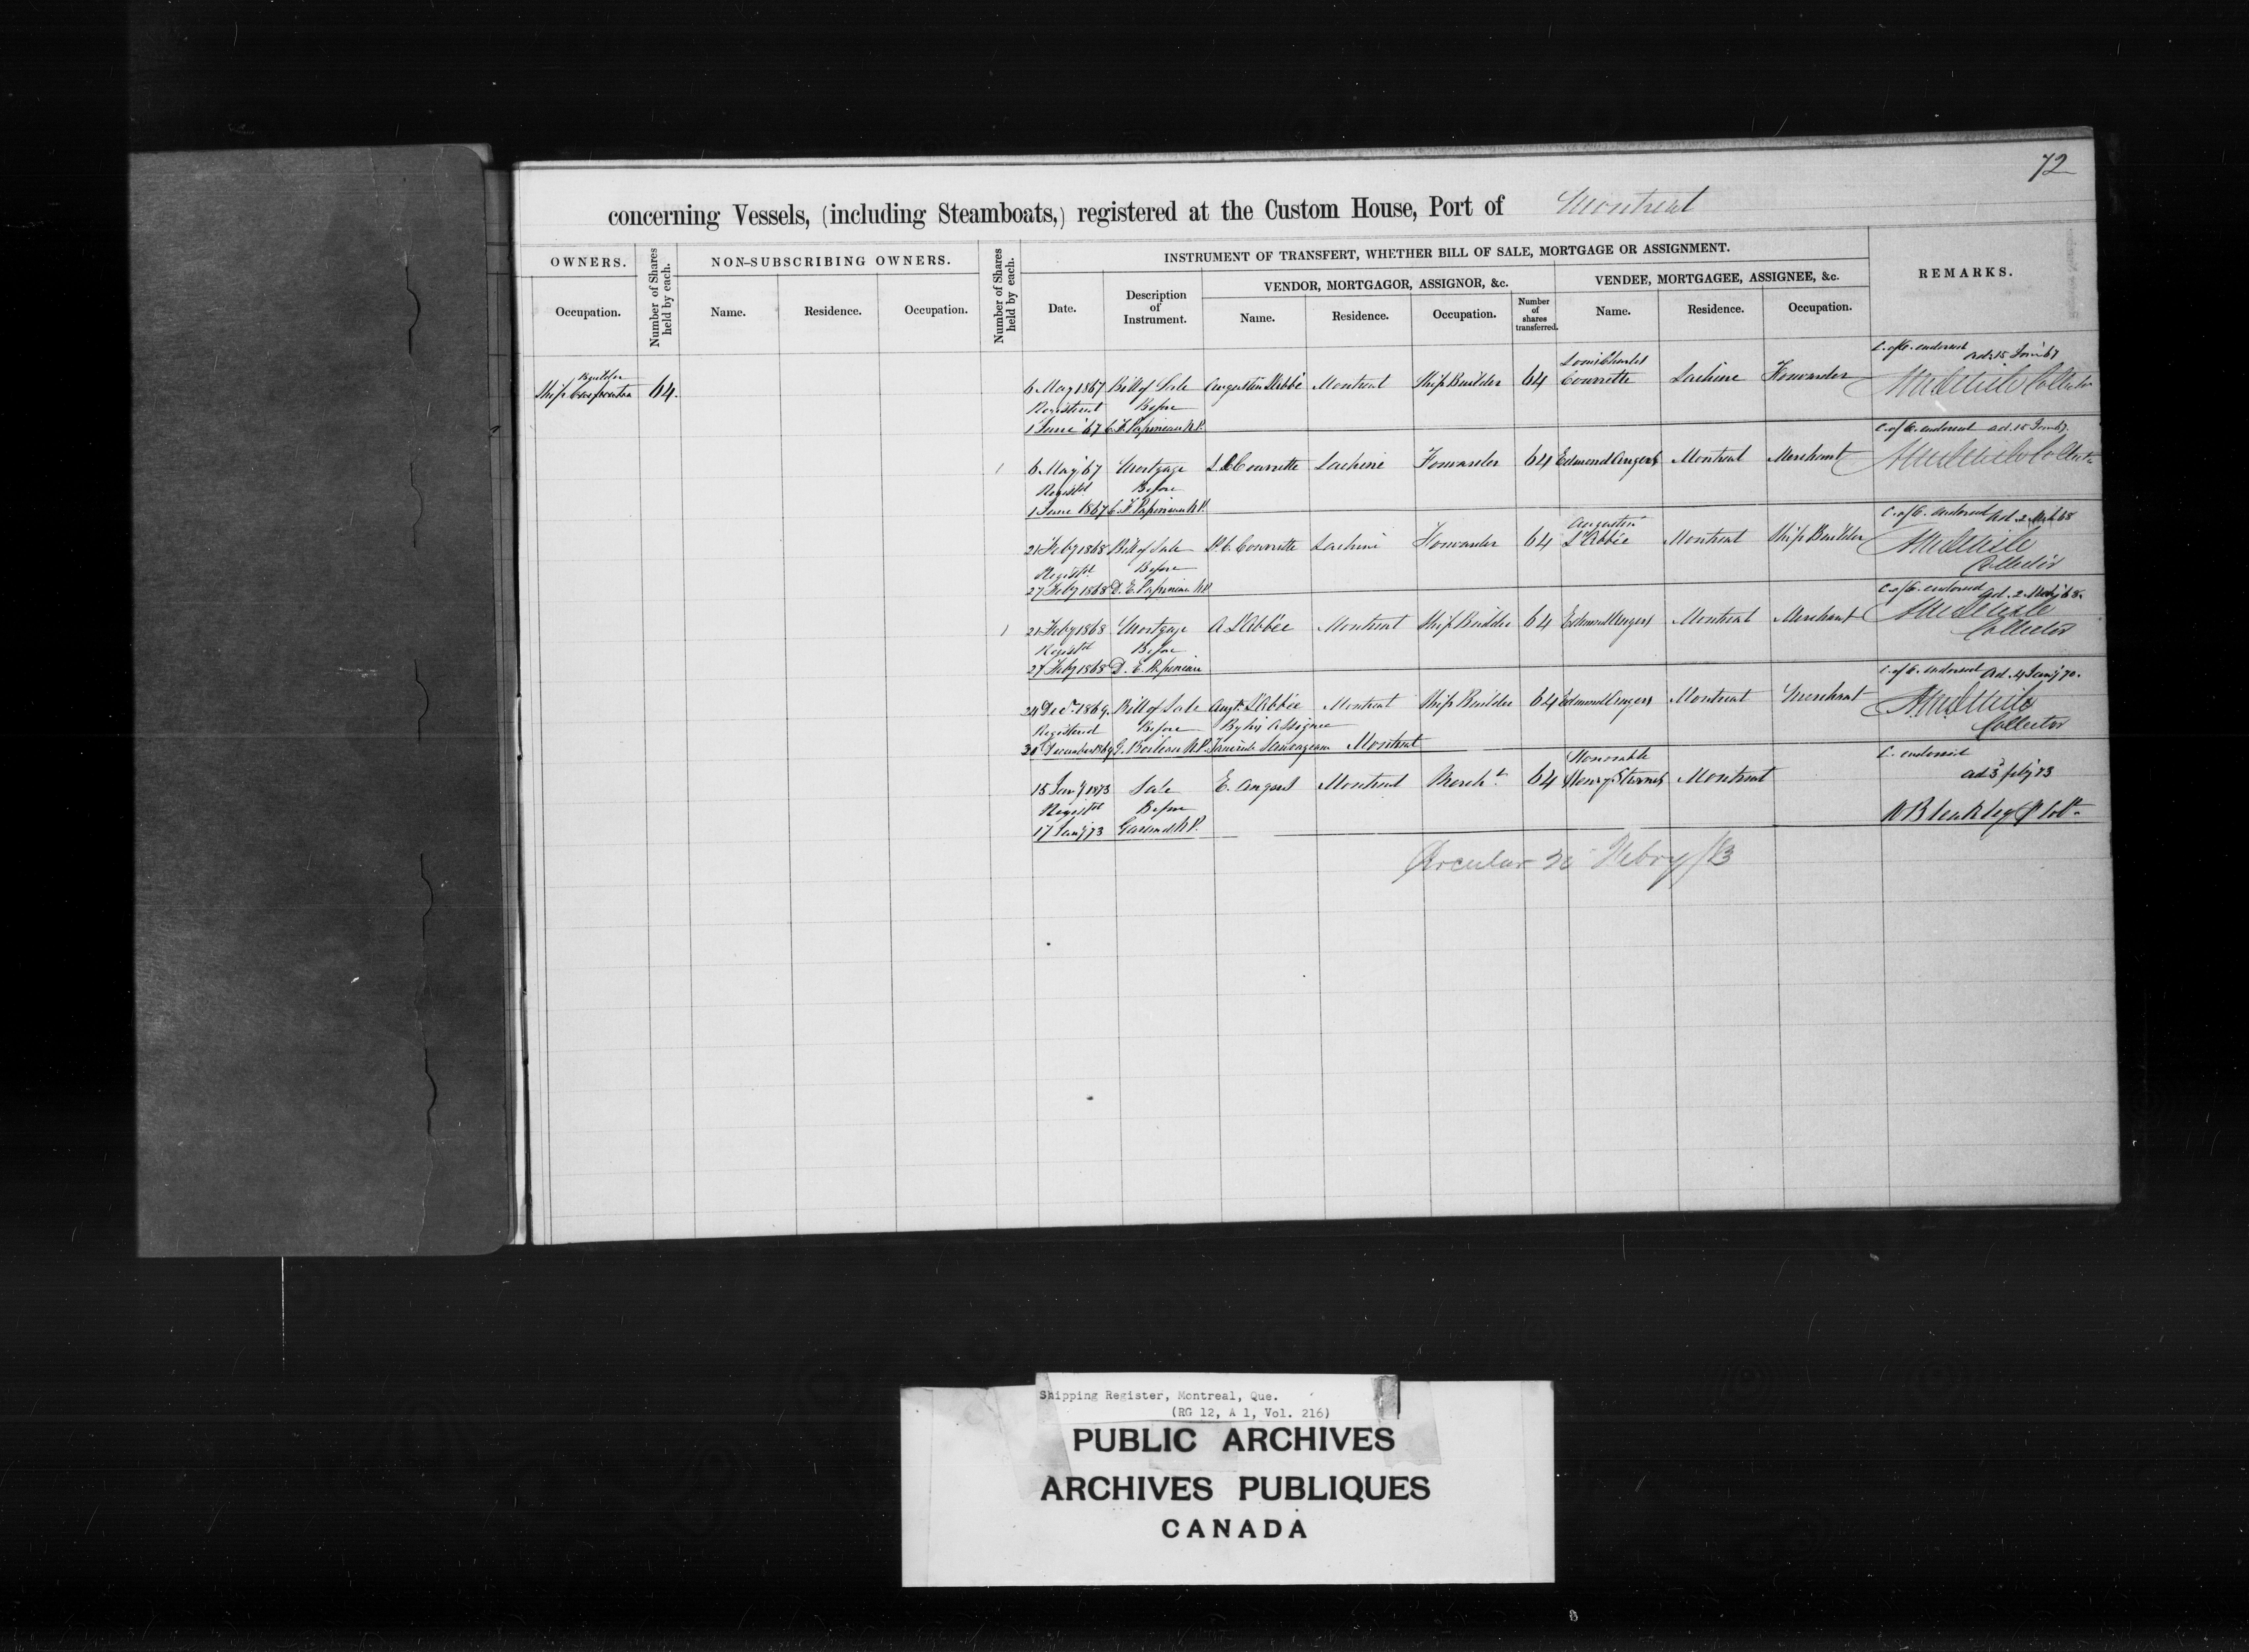 72
concerning Vessels, (including Steamboats,) registered at the Custom House, Port of Montreal
OWNERS.
Number of Shares held by each.
NON-SUBSCRIBING OWNERS.
Number of Shares held by each.
INSTRUMENT OF TRANSFERT, WHETHER BILL OF SALE, MORTGAGE OR ASSIGNMENT.
REMARKS.
VENDOR, MORTGAGOR, ASSIGNOR, &c.
VENDEE, MORTGAGEE, ASSIGNEE, &c.
Occupation.
Name.
Residence.
Occupation.
Date.
Description of Instrument.
Name.
Residence.
Occupation.
Number of shares transferred.
Name.
Residence.
Occupation.
Builder
Ship 64.
Louis Charles C. of O. endorsed
6 May 1867 Bill of Sale Augustin L'Abbé Montreal Ship Builder 64 Courrette Lachine Forwarder Collector
Registered Before
1 June '67 C. F. Papineau N.P.
C. of O. endorsed
6 May '67 Mortgage L. C. Courrette Lachine Forwarder 64 Edmond Angers Montreal Merchant
Regist'd Before
1 June 1867 C. F. Papineau N.P.
Augustin C. of O. endorsed
21 Feby 1868 Bill of Sale L. C. Courrette Lachine Forwarder 64 L'Abbée Montreal Ship Builder
Regist'd Before Collector
27 Feby 1868 D. E. Papineau N.P.
C. of O. endorsed
21 Feby 1868 Mortgage A. L'Abbée Montreal Ship Builder 64 Edmond Angers Montreal Merchant Collector
Regist'd Before
27 Feby 1868 D. E. Papineau
C. of O. endorsed Ad. 4 Jany '70.
24 Dec. 1869. Bill of Sale Augt. L'Abbée Montreal Ship Builder 64 Edmond Angers Montreal Merchant
Registered Before By his Assignee Collector
30 December 1869 G. Boileau N.P. Sauvageau Montreal
Honorable C. endorsed
15 Jany 1873 Sale E. Angers Montreal Merch.t 64 Henry Starnes Montreal ad 3 feby 73
Regist'd Before
17 Jany '73 N.P.
Circular 20 Febry /73
Shipping Register, Montreal, Que.
(RG 12, A 1, Vol. 216)
PUBLIC ARCHIVES
ARCHIVES PUBLIQUES
CANADA